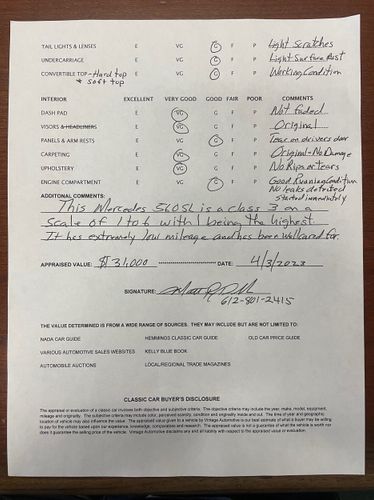 TAIL LIGHTS & LENSES E VG G F P Light Scratches
UNDERCARRIAGE E VG G F P Light Surface Rust
CONVERTIBLE TOP - Hard top E VG G F P Working Condition
& Soft top
INTERIOR EXCELLENT VERY GOOD GOOD FAIR POOR COMMENTS
DASH PAD E VG G F P Not faded
VISORS & HEADLINERS E VG G F P Original
PANELS & ARM RESTS E VG G F P Tear on drivers door
CARPETING E VG G F P Original - No Damage
UPHOLSTERY E VG G F P No Rips or tears
ENGINE COMPARTMENT E VG G F P Good Running Condition
No leaks detected
Started immediately
ADDITIONAL COMMENTS:
This Mercedes 560SL is a class 3 on a
Scale of 1 to 6 with 1 being the highest.
It has extremely low mileage and has been well cared for.
APPRAISED VALUE: $31,000 DATE: 4/3/2023
SIGNATURE:
612-801-2415
THE VALUE DETERMINED IS FROM A WIDE RANGE OF SOURCES. THEY MAY INCLUDE BUT ARE NOT LIMITED TO:
NADA CAR GUIDE HEMMINGS CLASSIC CAR GUIDE OLD CAR PRICE GUIDE
VARIOUS AUTOMOTIVE SALES WEBSITES KELLY BLUE BOOK
AUTOMOBILE AUCTIONS LOCAL/REGIONAL TRADE MAGAZINES
CLASSIC CAR BUYER'S DISCLOSURE
The appraisal or evaluation of a classic car involves both objective and subjective criteria. Objective criteria may include the year, make, model, equipment,
mileage and originality. The subjective criteria may include color, perceived scarcity, condition and originality inside and out. The time of year and geographic
location of vehicle may also influence the value. The appraised value given to a vehicle by Vintage Automotive is our best estimate of what a buyer may be willing
to pay for the vehicle based upon our experience, knowledge, comparisons and research. The appraised value is not a guarantee of what the vehicle is worth nor
does it guarantee the selling price of the vehicle. Vintage Automotive disclaims any and all liability with respect to this appraised value or evaluation.